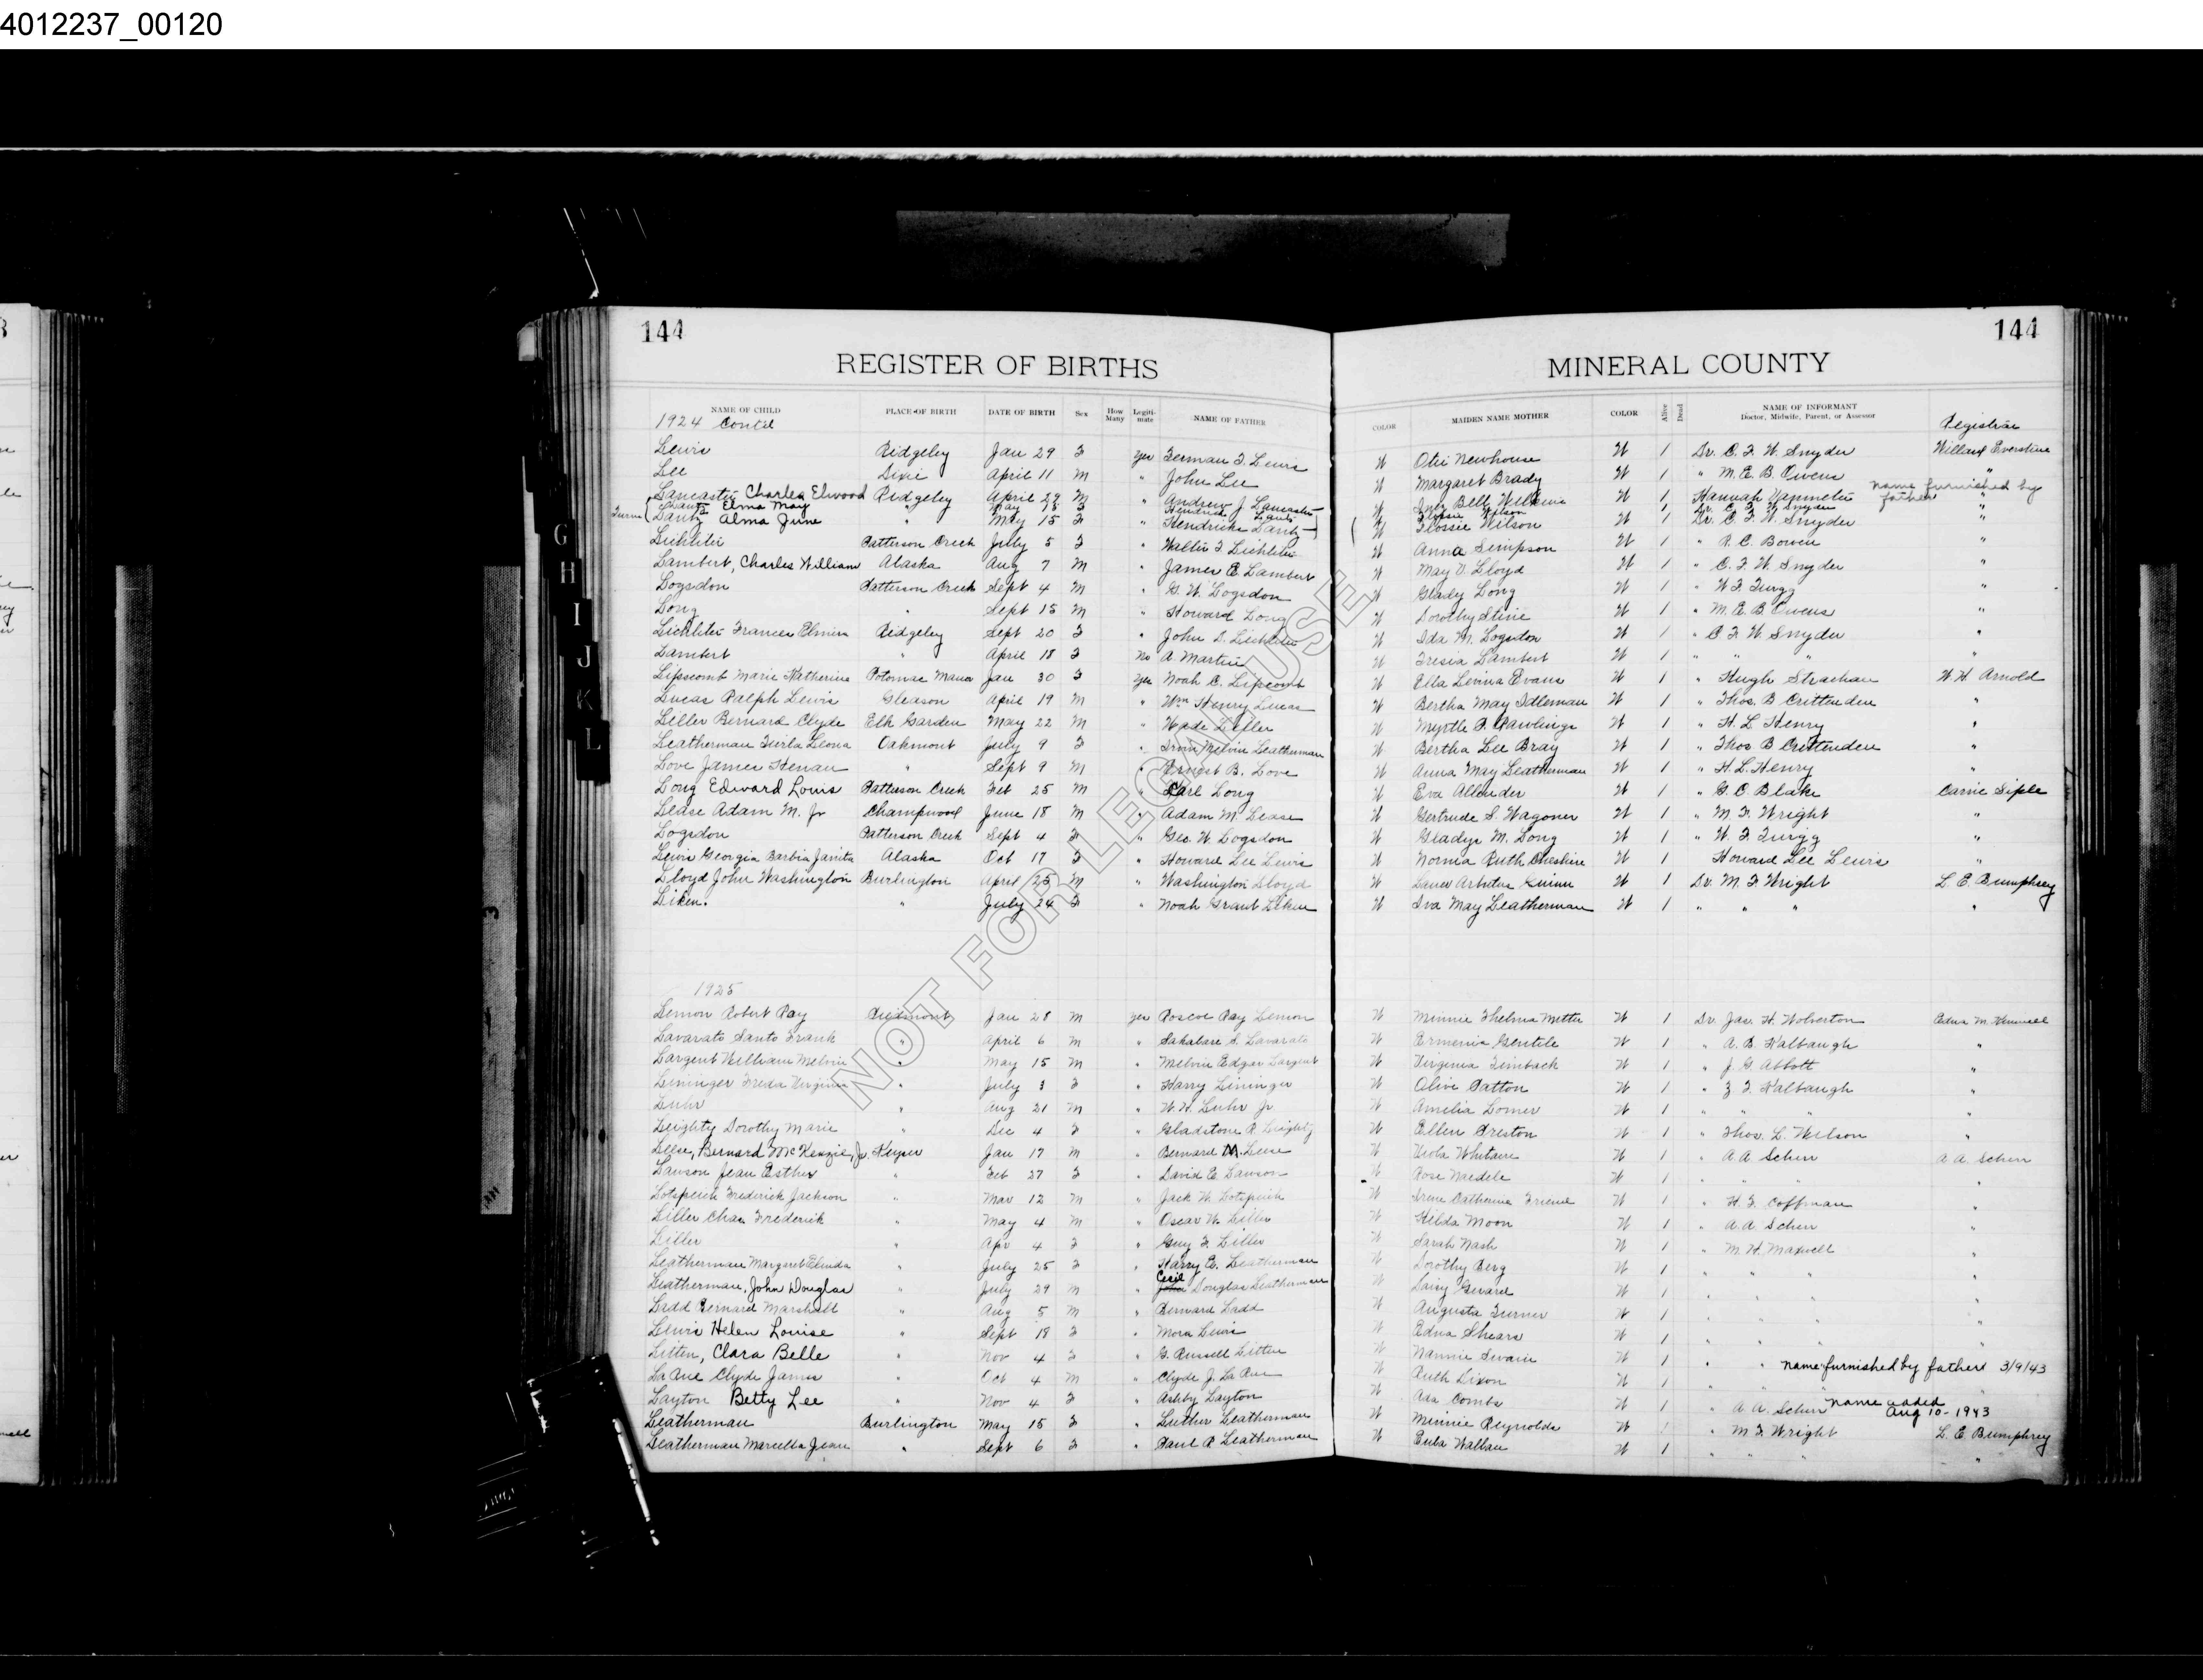 4012237_00120
144 144
REGISTER OF BIRTHS MINERAL COUNTY
NAME OF CHILD PLACE OF BIRTH DATE OF BIRTH Sex How Many Legiti-mate NAME OF FATHER COLOR MAIDEN NAME MOTHER COLOR Alive Dead NAME OF INFORMANT Doctor, Midwife, Parent, or Assessor Registrar
1924 Contd
Lewis Ridgeley Jan 29 F yes Herman F. Lewis W Otie Newhouse W 1 Dr. C. F. W. Snyder Willard Everstine
Lee Dixie April 11 M " John Lee W Margaret Brady W 1 " M. E. B. Owens "
Lancaster Charles Elwood Ridgeley April 29 M " Andrew J Lancaster W Belle Wilkins W 1 Hannah Vanmeter name furnished by father "
Lantz Elma May " May 15 F " Hendricks Lantz W Flossie Wilson W 1 Dr. C. F. W. Snyder "
Lantz Alma June " May 15 F " Hendricks Lantz W Flossie Wilson W 1 Dr. C. F. W. Snyder "
Lichliter Patterson Creek July 5 F " Walter F Lichliter W Anna Simpson W 1 " R. C. Bowen "
Lambert, Charles William Alaska Aug 7 M " James E. Lambert W May V. Lloyd W 1 " C. F. W. Snyder "
Logsdon Patterson Creek Sept 4 M " G. W. Logsdon W Glady Long W 1 " W. F. Twigg "
Long " Sept 15 M " Howard Long W Dorothy Stine W 1 " M. E. B Owens "
Lichliter Frances Elmira Ridgeley Sept 20 F " John D. Lichliter W Ida M. Logsdon W 1 " C F W Snyder "
Lambert " April 18 F No A. Martin W Tresia Lambert W 1 " " " "
Lipscomb Marie Katherine Potomac Manor Jan 30 F yes Noah C. Lipscomb W Ella Levina Evans W 1 " Hugh Strachan W. W. Arnold
Lucas Ralph Lewis Gleason April 19 M " Wm Henry Lucas W Bertha May Idleman W 1 " Thos. B Crittenden "
Liller Bernard Clyde Elk Garden May 22 M " Wade Liller W Myrtle B Rawlings W 1 " H. L Henry "
Leatherman Leona Oakmont July 9 F " Irvin Melvin Leatherman W Bertha Lee Bray W 1 " Thos B Crittenden "
Love James Henan " Sept 9 M " Ernest B. Love W Anna May Leatherman W 1 " H. L. Henry "
Long Edward Louis Patterson Creek Feb 25 M " Carl Long W Eva Allender W 1 " G C Blake Carrie Siple
Lease Adam M. Jr Champwood June 18 M " Adam M. Lease W Gertrude S. Wagoner W 1 " M. F. Wright "
Logsdon Patterson Creek Sept 4 F " Geo. W. Logsdon W Gladys M. Long W 1 " W. F Twigg "
Lewis Georgia Barbia Janita Alaska Oct 17 F " Howard Lee Lewis W Nornia Ruth Cheshire W 1 Howard Lee Lewis "
Lloyd John Washington Burlington April 25 M " Washington Lloyd W Arbutus Guinn W 1 Dr. M. F. Wright L. E. Bumphrey
Liken. " July 24 F " Noah Grant Liken W Iva May Leatherman W 1 " " " "
1925
Lemon Robert Ray Piedmont Jan 28 M yes Roscoe Ray Lemon W Minnie Thelma W 1 Dr. Jas. H. Wolverton Edna M.
Lavarato Santo Frank " April 6 M " S. Lavarato W Ermenia Gentile W 1 " A. B. Kalbaugh "
Largent William Melvin " May 15 M " Melvin Edgar Largent W Virginia Timbach W 1 " J. G. Abbott "
Lininger Freda Virginia " July 3 F " Harry Lininger W Alive Patton W 1 " Z. F. Kalbaugh "
Luhr " Aug 21 M " W. H. Luhr Jr W Amelia Lomer W 1 " " " "
Leighty Dorothy Marie " Dec 4 F " Gladstone R. Leighty W Ellen Preston W 1 " Thos. L. Wilson "
Leese, Bernard McKenzie, Jr. Keyser Jan 17 M " Bernard M. Leese W Viola Whitacre W 1 " A A Scherr A. A. Scherr
Lawson Jean Esther " Feb 27 F " David E. Lawson W Rose Naedele W 1 " " " "
Lotspeich Frederick Jackson " Mar 12 M " Jack W. Lotspeich W Irene Catherine Friend W 1 " H. F. Coffman "
Liller Chas. Frederick " May 4 M " Oscar W. Liller W Hilda Moon W 1 " A. A. Scherr "
Liller " Apr 4 F " Guy F. Liller W Sarah Nash W 1 " M. H. Maxwell "
Leatherman Margaret Elinda " July 25 F " Harry E. Leatherman W Dorothy Berg W 1 " " " "
Leatherman, John Douglas " July 29 M " Cecil Douglas Leatherman W Daisy W 1 " " " "
Ladd Bernard Marshall " Aug 5 M " Bernard Ladd W Augusta Turner W 1 " " " "
Lewis Helen Louise " Sept 18 F " Mora Lewis W Edna Shears W 1 " " " "
Litten, Clara Belle " Nov 4 F " G. Russell Litten W Nannie Swain W 1 " " name furnished by father 3/9/43
La Rue Clyde James " Oct 4 M " Clyde J. La Rue W Ruth Dixon W 1 " " "
Layton Betty Lee " Nov 4 F " Ashby Layton W Ara Combs W 1 " A. A. Scherr name added Aug 10-1943
Leatherman Burlington May 15 F " Luther Leatherman W Minnie Reynolds W 1 " M. F. Wright L. E. Bumphrey
Leatherman Marcella Jean " Sept 6 F " Paul R. Leatherman W Eula W 1 " " " "
G
H
I
J
K
L
NOT FOR LEGAL USE